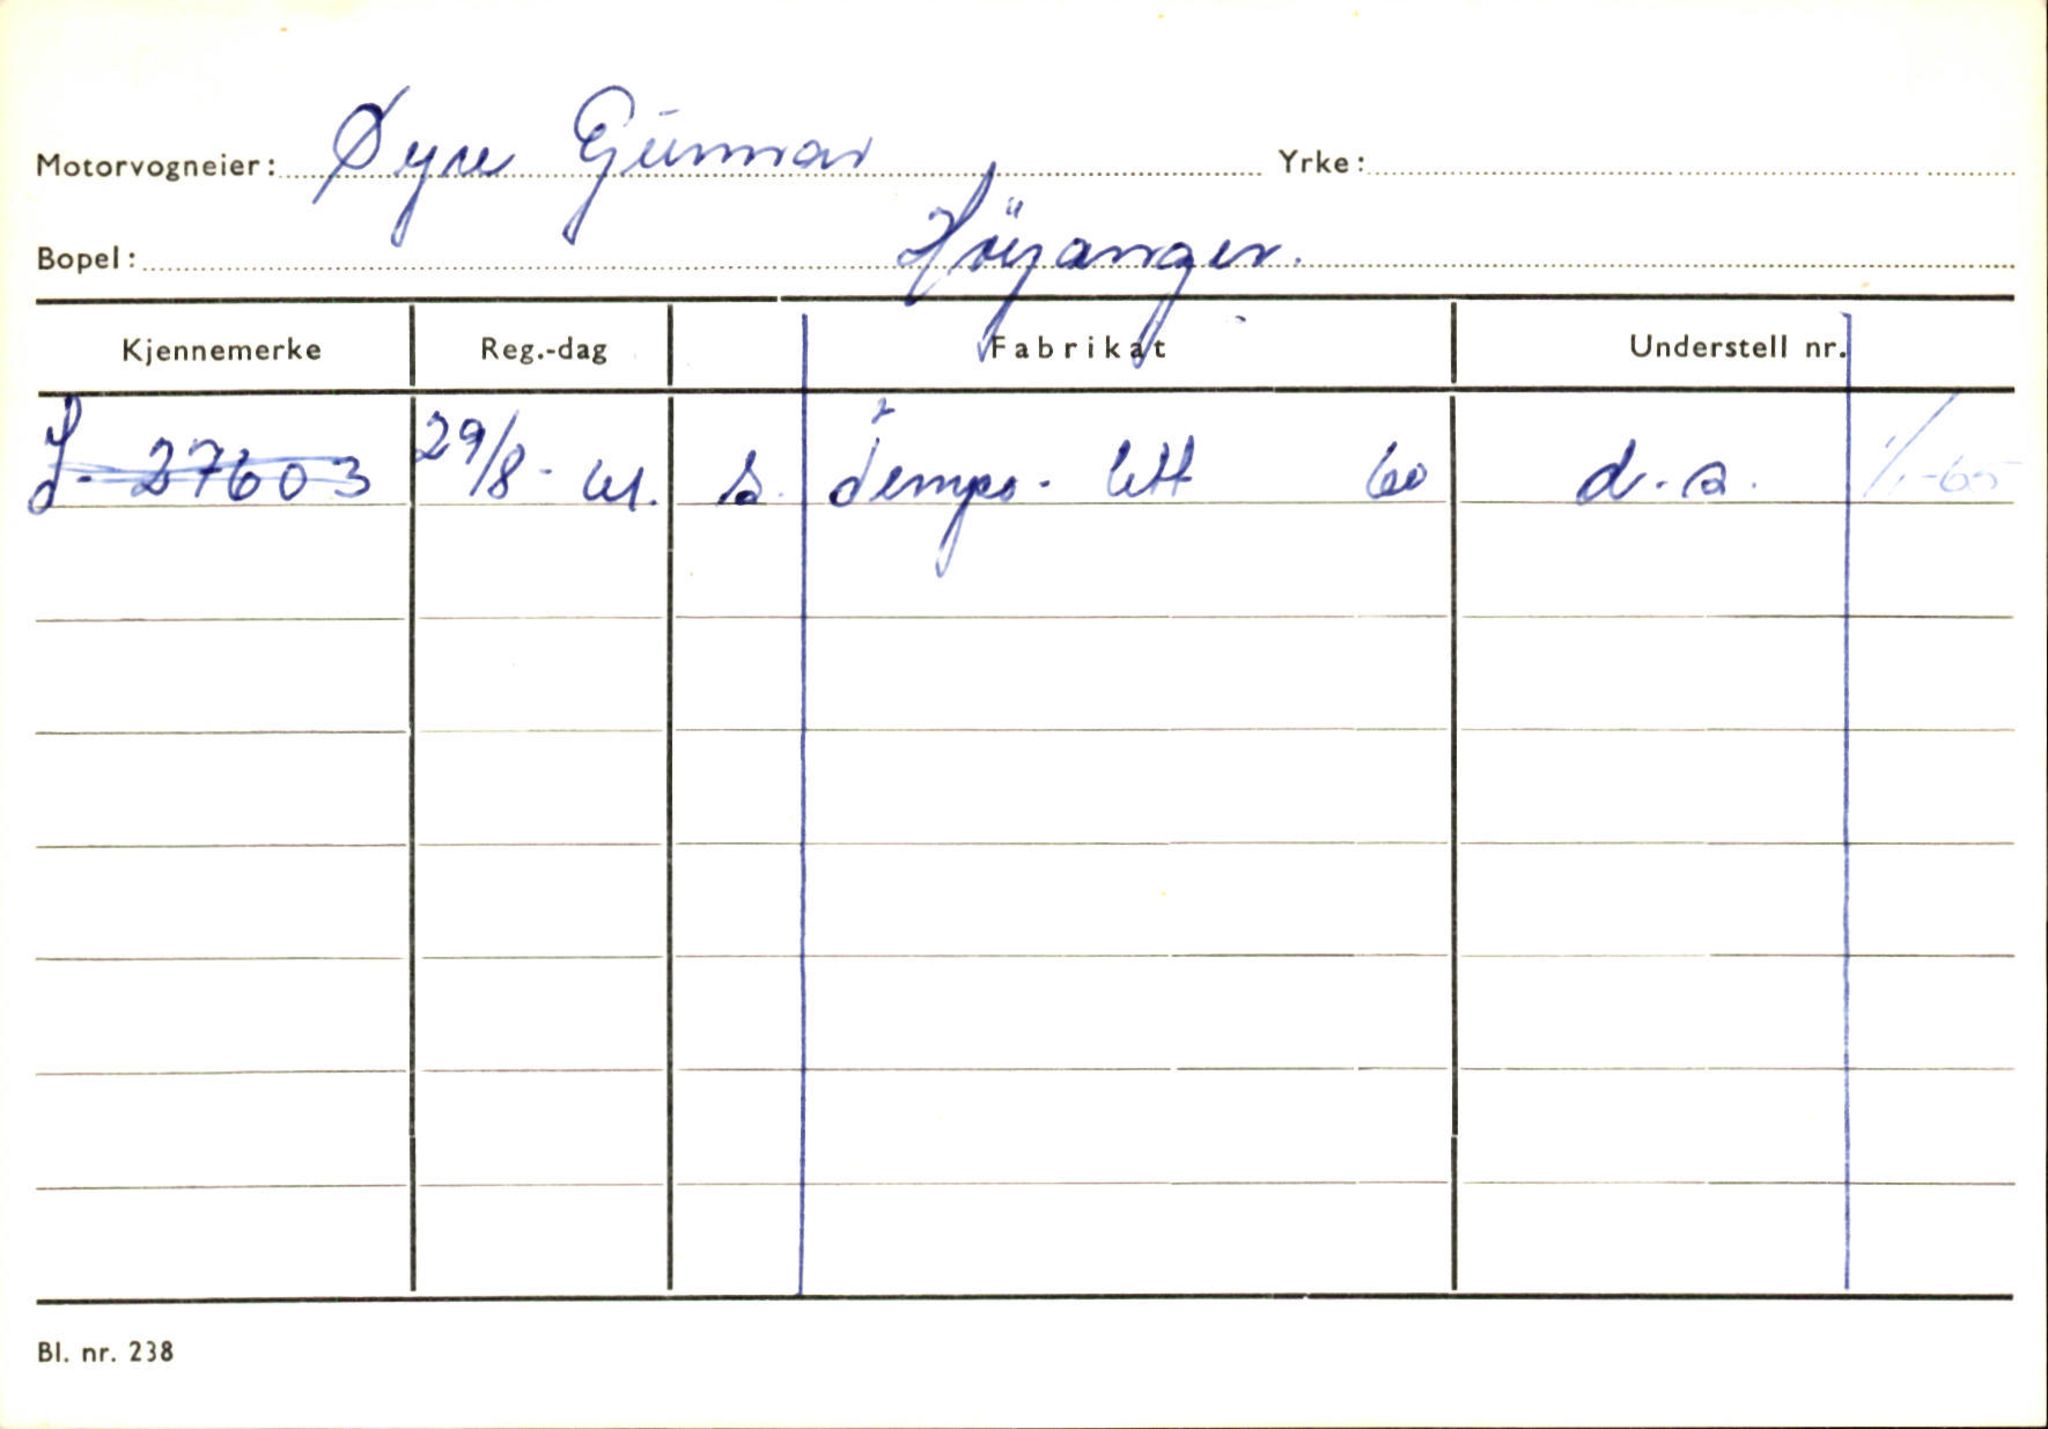 Motorvogneier: Øyre Gunnar Yrke:
Bopel: Höyanger.
Kjennemerke Reg.-dag Fabrikat Understell nr.
S- 27603 29/8- 61. s. Tempo- lett 60 d.s. 1/1-65
Bl. nr. 238